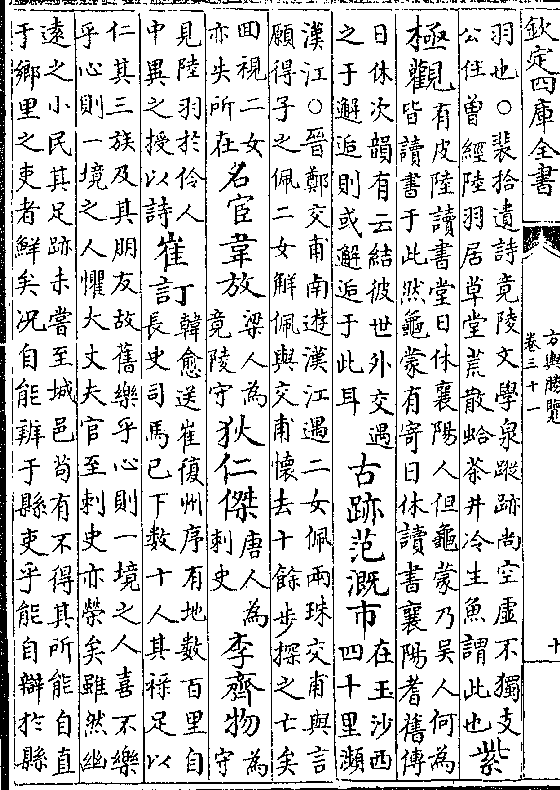 欽定四庫全書
方輿勝覽
卷三十一
十
羽也○裴拾遺詩竟陵文學泉蹤跡尚空虛不獨支
公住曾經陸羽居草堂荒散蛤茶井冷生魚謂此也
紫
極觀
有皮陸讀書堂日休襄陽人但龜蒙乃吳人何為
皆讀書于此然龜蒙有寄日休讀書襄陽耆舊傳
日休次韻有云結彼世外交遇
之于邂逅則或邂逅于此耳
古跡范溉市
在玉沙西
四十里瀕
漢江○晉鄭交甫南遊漢江遇二女佩兩珠交甫與言
願得子之佩二女解佩與交甫懷去十餘步探之亡矣
回視二女
亦失所在
名宦韋放
梁人為
竟陵守
狄仁傑
唐人為
刺史
李齊物
為
守
見陸羽於伶人
中異之授以詩
崔訂
韓愈送崔復州序有地數百里自
長史司馬已下數十人其祿足以
仁其三族及其朋友故舊樂乎心則一境之人喜不樂
乎心則一境之人懼大丈夫官至刺史亦榮矣雖然幽
遠之小民其足跡未嘗至城邑苟有不得其所能自直
于鄉里之吏者鮮矣况自能辨于縣吏乎能自辯於縣